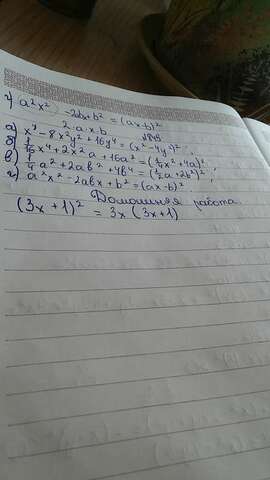 г) a²x² - 2abx + b² = (ax-b)²
2·a·x·b
а) x⁴ - 8x²y² + 16y⁴ = (x² - 4y²)²;
б) 1/16x⁴ + 2x²a + 16a² = (1/4x² + 4a)²;
в) 1/4a² + 2ab² + 4b⁴ = (1/2a + 2b²)²;
г) a²x² - 2abx + b² = (ax-b)²
Домашняя работа.
(3x + 1)² = 3x (3x+1)